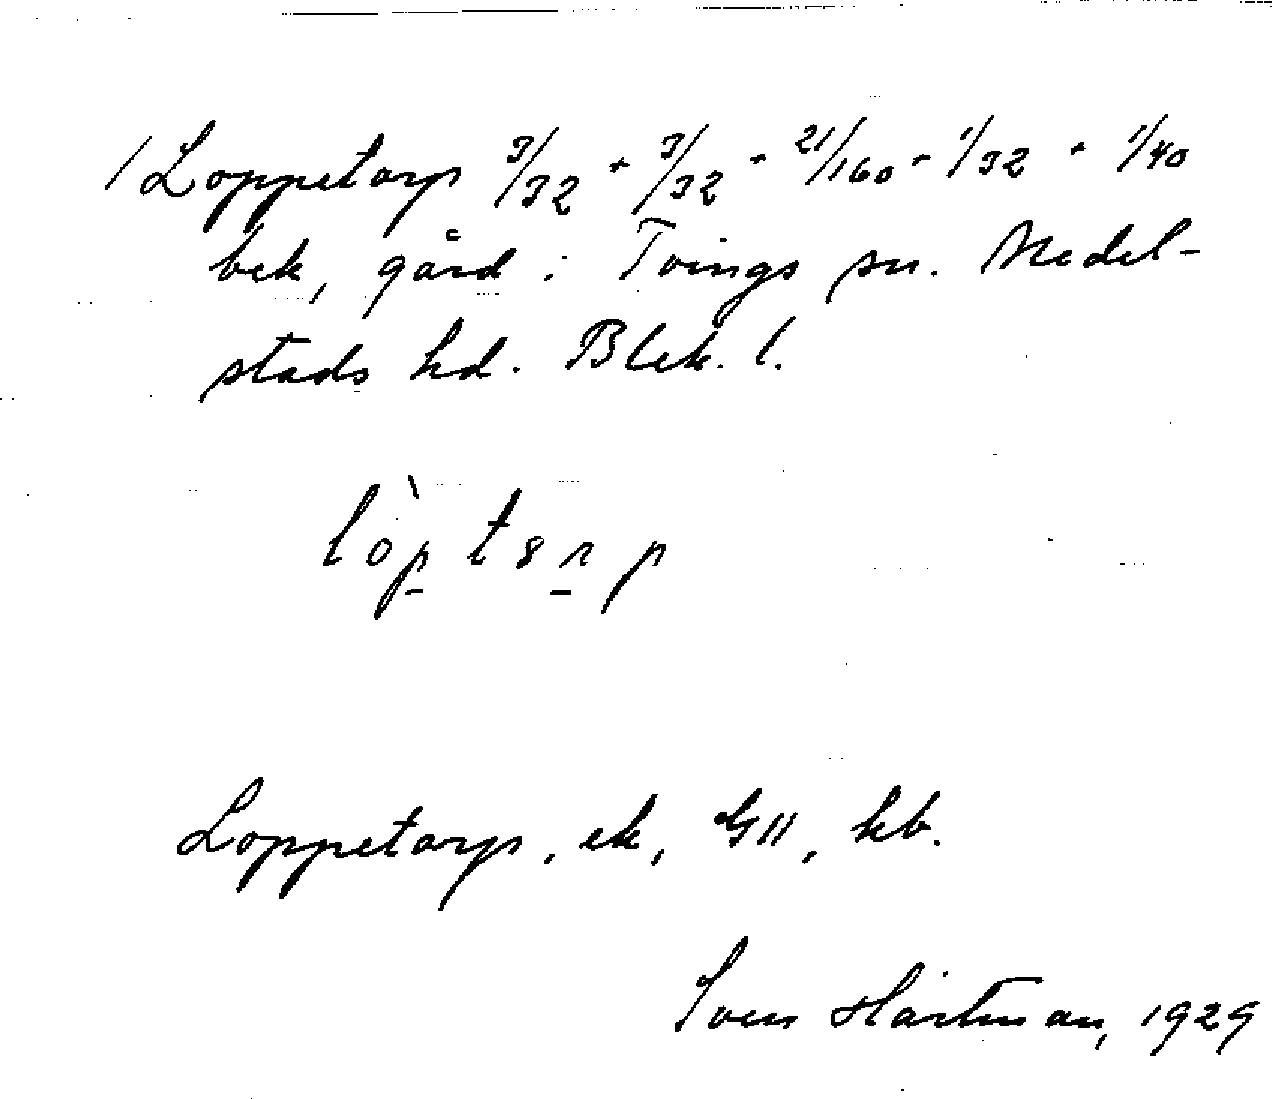 / Loppetorp 3/32 + 3/32 + 21/160 + 1/32 + 1/40
bek, gård i Tvings sn. Medel-
stads hd. Blek. l.
lòp̠ tɘr̠p
Loppetorp, ek, GII, kb.
Sven Hartman, 1929